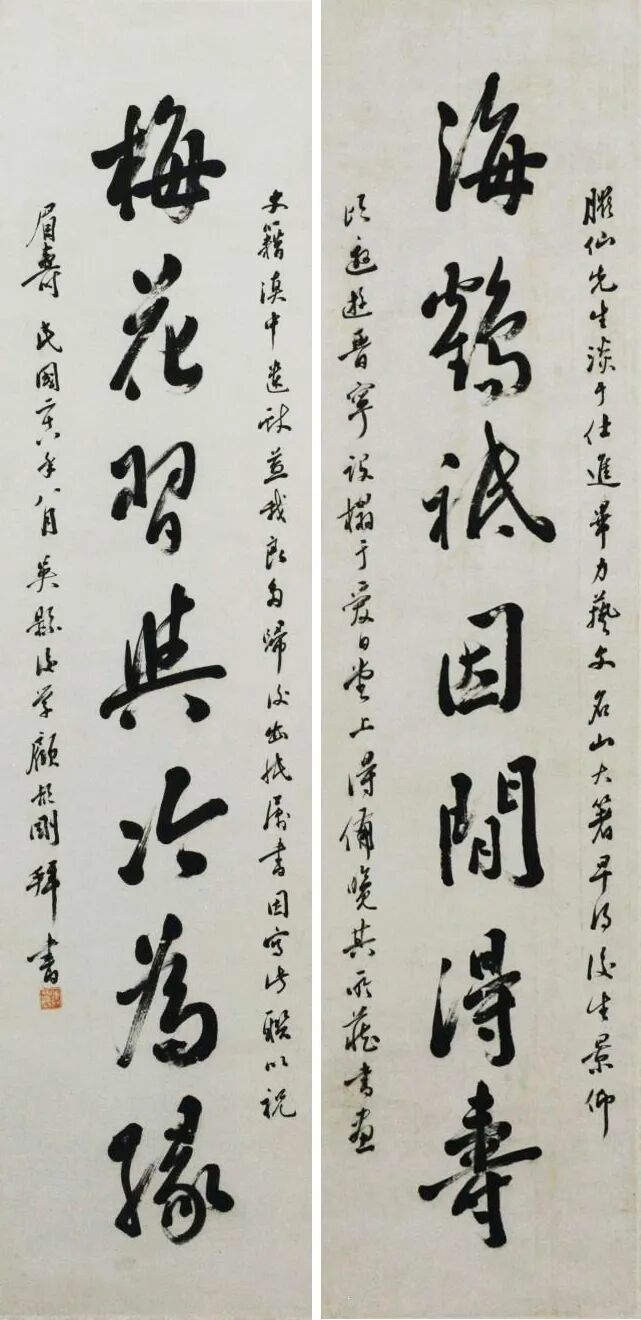 臞仙先生淡于仕進畢力藝文名山大著早後生景仰
海鶴祗因間得壽
頃邀遊晉寧設榻于愛日堂上得備覽其所藏書畫
文籍滇中遺獻益我良多歸後出紙屬書因寫此聯以祝
梅花習與冷為緣
眉壽民國二十八年八月吳縣後學顧頡剛拜書